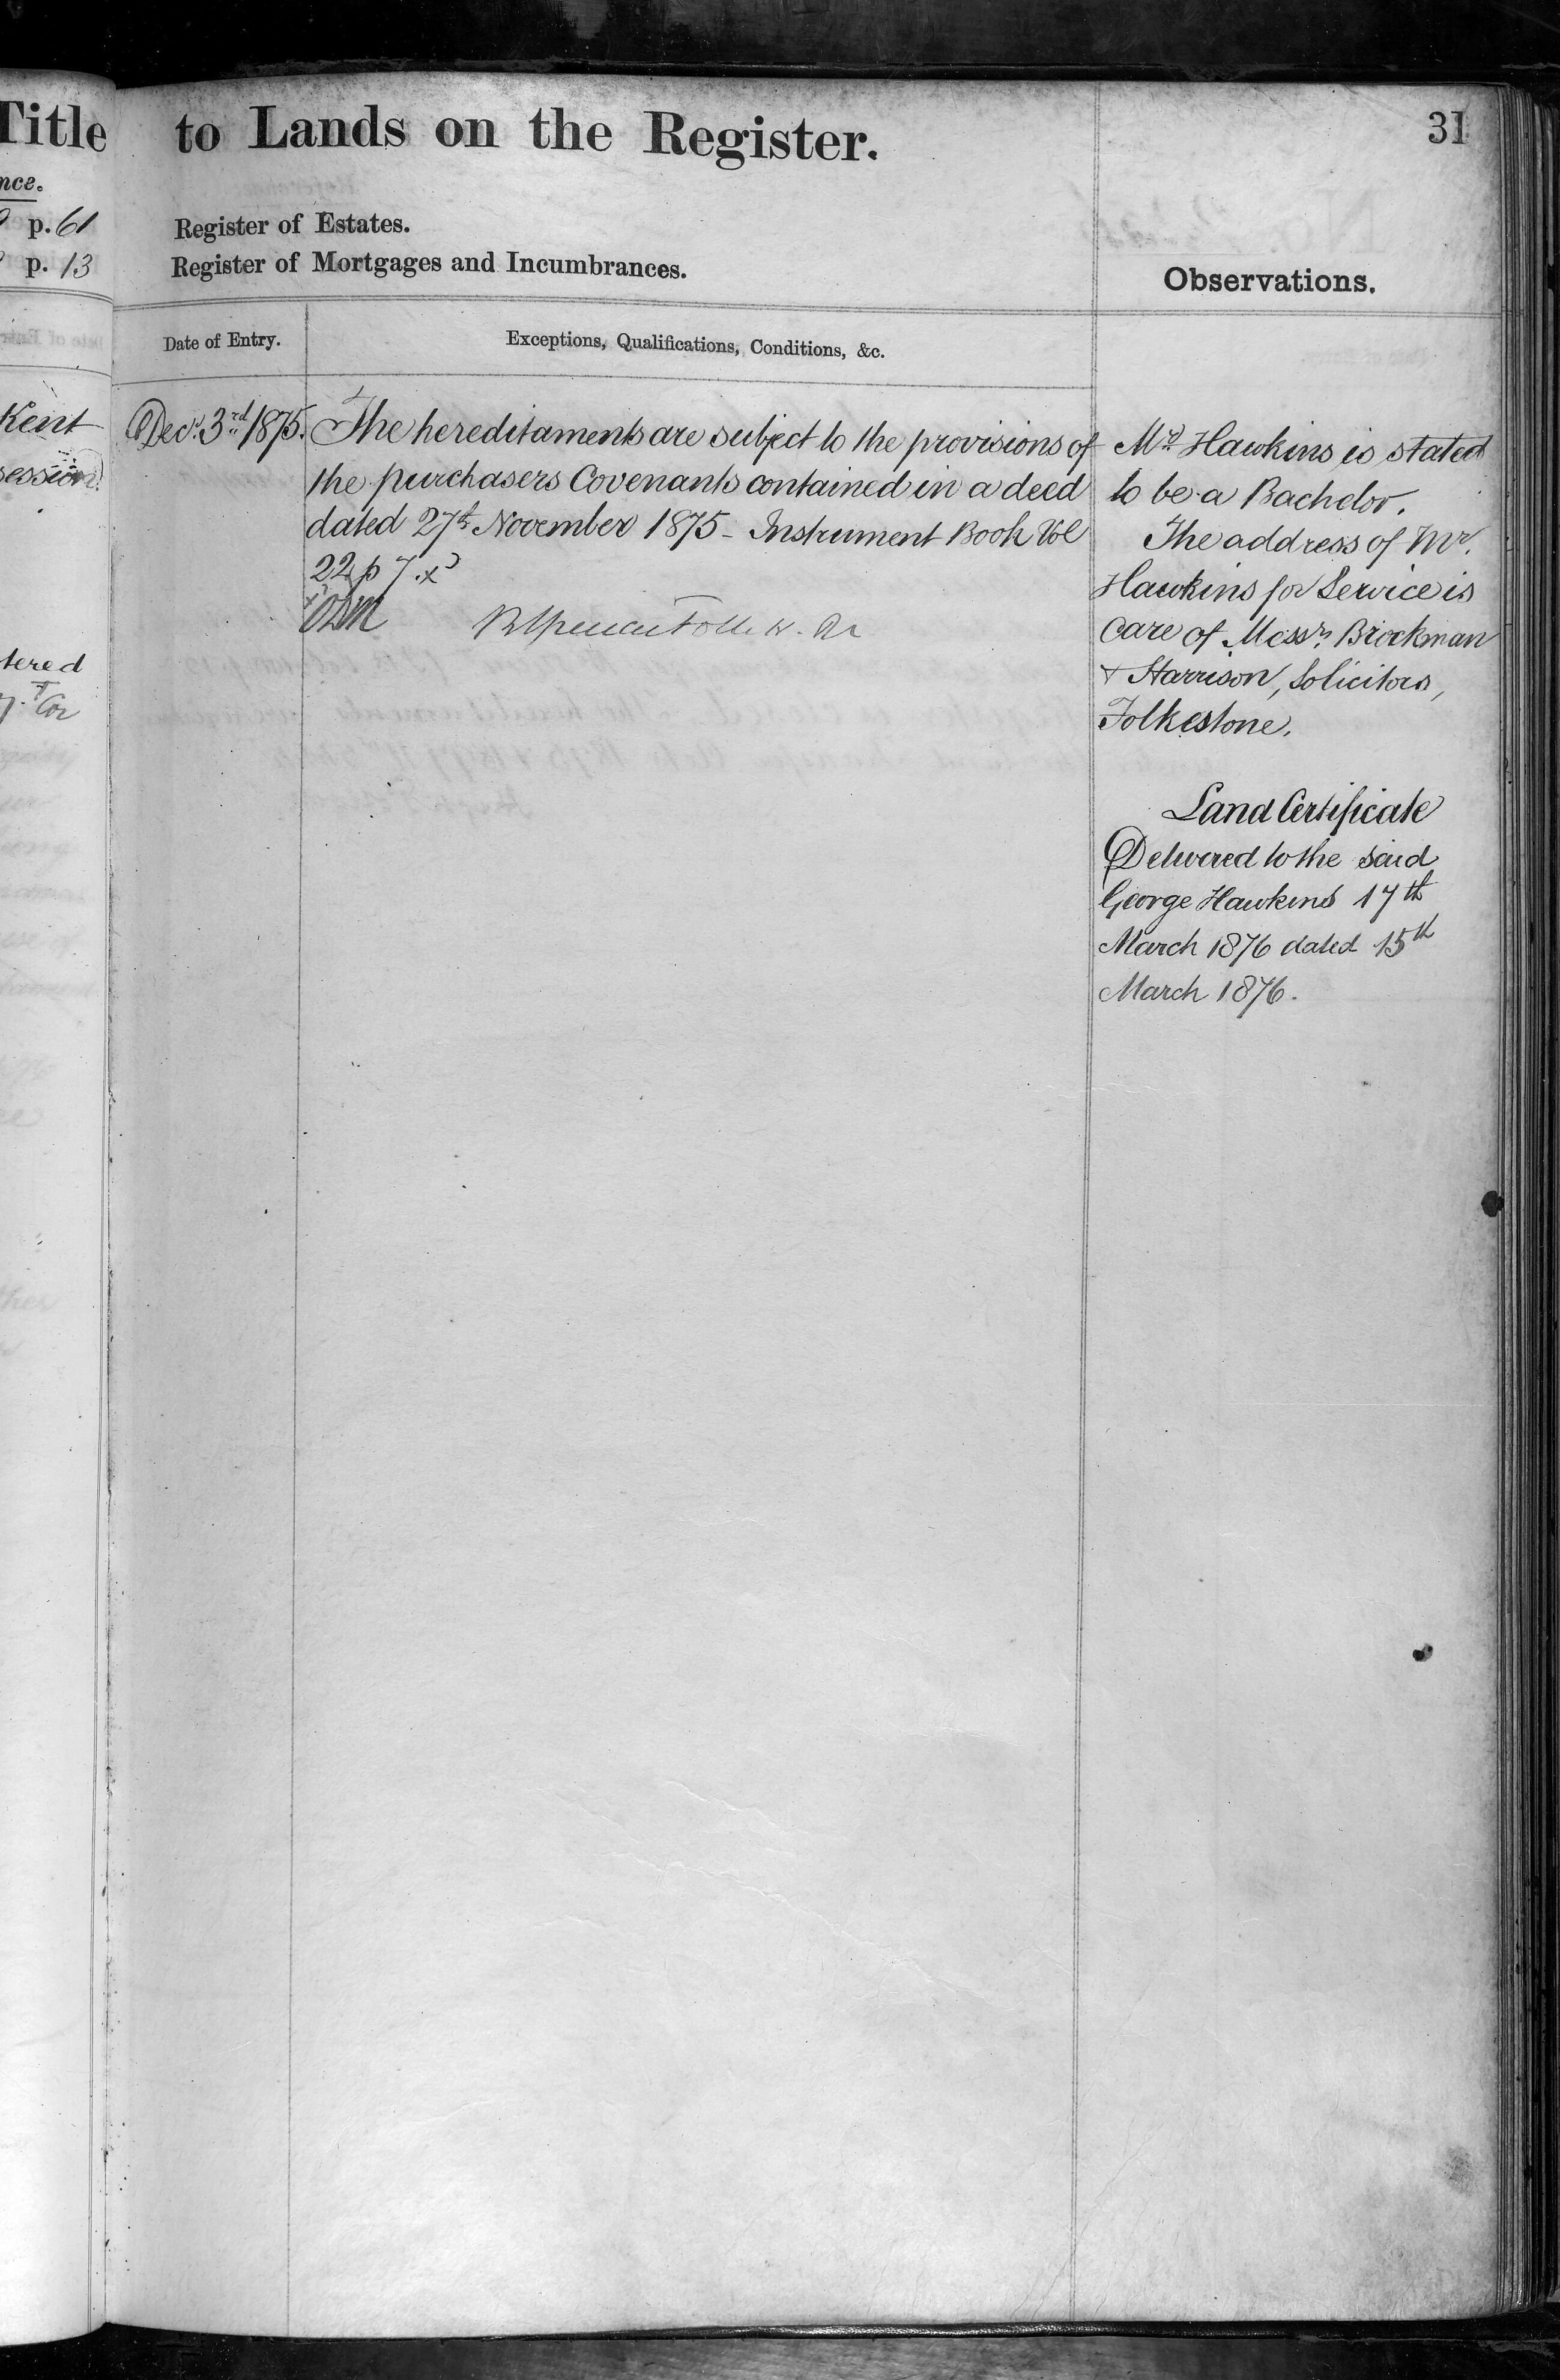 Title
nce.
p. 61
p. 13
Kent
session
tered
to Lands on the Register.
31
Register of Estates.
Register of Mortgages and Incumbrances.
Observations.
Date of Entry.
Exceptions, Qualifications, Conditions, &c.
Decr. 3rd 1875.
The hereditaments are subject to the provisions of
the purchasers Covenants contained in a deed
dated 27th November 1875 - Instrument Book Vol
22 p 7. x
Mr. Hawkins is stated
to be a Bachelor.
The address of Mr.
Hawkins for Service is
care of Messrs Brockman
& Harrison, Solicitors,
Folkestone.
Land Certificate
Delivered to the said
George Hawkins 17th
March 1876 dated 15th
March 1876.